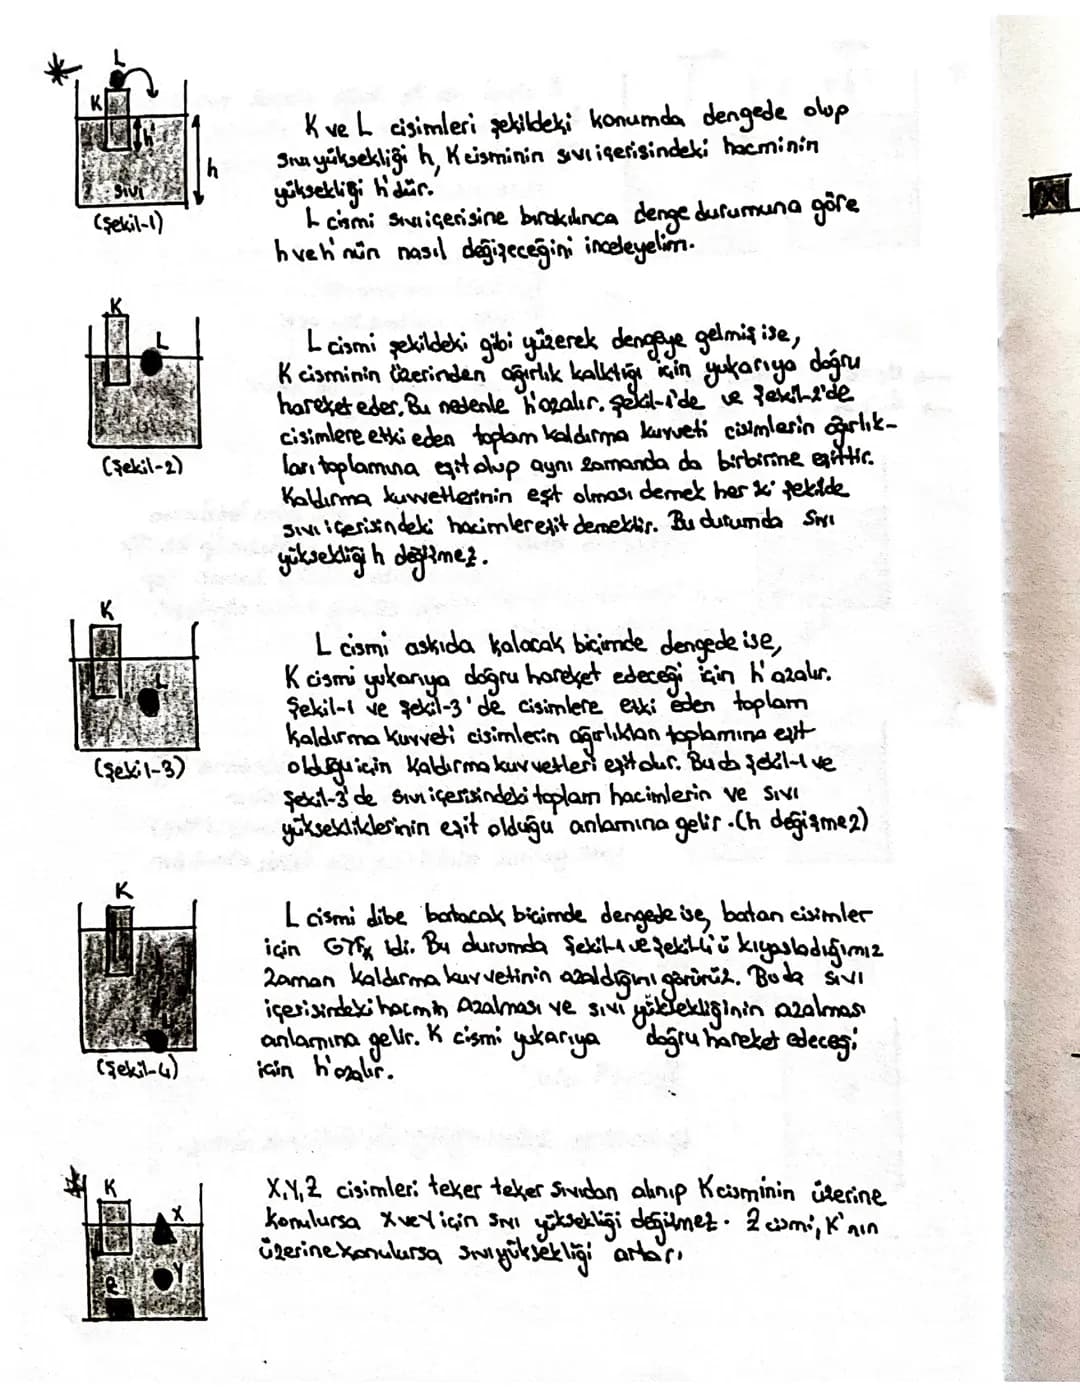 L
K
h'
h
SIVI
(Şekil-1)
K ve L cisimleri şekildeki konumda dengede olup
Sıvı yüksekliği h, K cisminin sıvı içerisindeki hacminin
yüksekliği h'dür.
L cismi sıvı içerisine bırakılınca denge durumuna göre
h ve h' nün nasıl değişeceğini inceleyelim.
K
L
(Şekil-2)
L cismi şekildeki gibi yüzerek dengeye gelmiş ise,
K cisminin üzerinden ağırlık kalktığı için yukarıya doğru
hareket eder. Bu nedenle h' azalır. Şekil-1'de ve Şekil-2'de
cisimlere etki eden toplam kaldırma kuvveti cisimlerin ağırlık-
ları toplamına eşit olup aynı zamanda da birbirine eşittir.
Kaldırma kuvvetlerinin eşit olması demek her iki şekilde
sıvı içerisindeki hacimler eşit demektir. Bu durumda Sıvı
yüksekliği h değişmez.
K
L
(Şekil-3)
L cismi askıda kalacak biçimde dengede ise,
K cismi yukarıya doğru hareket edeceği için h' azalır.
Şekil-1 ve Şekil-3'de cisimlere etki eden toplam
kaldırma kuvveti cisimlerin ağırlıkları toplamına eşit
olduğu için kaldırma kuvvetleri eşit olur. Bu da Şekil-1 ve
Şekil-3'de sıvı içerisindeki toplam hacimlerin ve SIVI
yüksekliklerinin eşit olduğu anlamına gelir. (h değişmez)
K
(Şekil-4)
L cismi dibe batacak biçimde dengede ise, batan cisimler
için idi. Bu durumda Şekil-1 ve Şekil-4'ü kıyasladığımız
zaman kaldırma kuvvetinin azaldığını görürüz. Bu da SIVI
içerisindeki hacmin azalması ve sıvı yüksekliğinin azalması
anlamına gelir. K cismi yukarıya doğru hareket edeceği
için h' azalır.
K
X
Y
X,Y,Z cisimleri teker teker Sıvıdan alınıp K cisminin üzerine
konulursa X ve Y için sıvı yüksekliği değişmez. Z cismi, K'nın
üzerine konulursa sıvı yüksekliği artar.